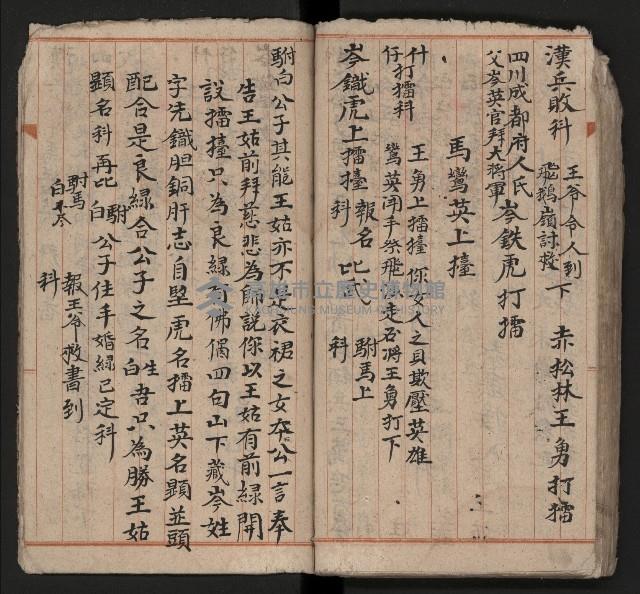 漢兵敗科　王爺令人到
飛鵝嶺討救　下　赤松林王勇打擂
四川成都府人氏
父岑英官拜大將軍　岑鉄虎打擂
馬鸞英上擂
什
仔打擂科　王勇上擂擡你女人之貝欺壓英雄
鸞英開手祭飛走石將王勇打下
岑鐡虎上擂擡報名比武　駙馬上
科　科
駙白公子其能王姑亦不是衣裙之女夲公一言奉
告王姑前拜慈悲為師説你以王姑有前緑開
設擂擡只為良緑有佛偈四句山下藏岑姓
字先鐡胆銅肝志自堅虎名擂上英名顕並頭
配合是良緑合公子之名　生白　吾只為勝王姑
顕名科再比　駙白　公子住手婚緑已定科
駙馬
白岑　報王爷救書到
科
高雄市立歷史博物館